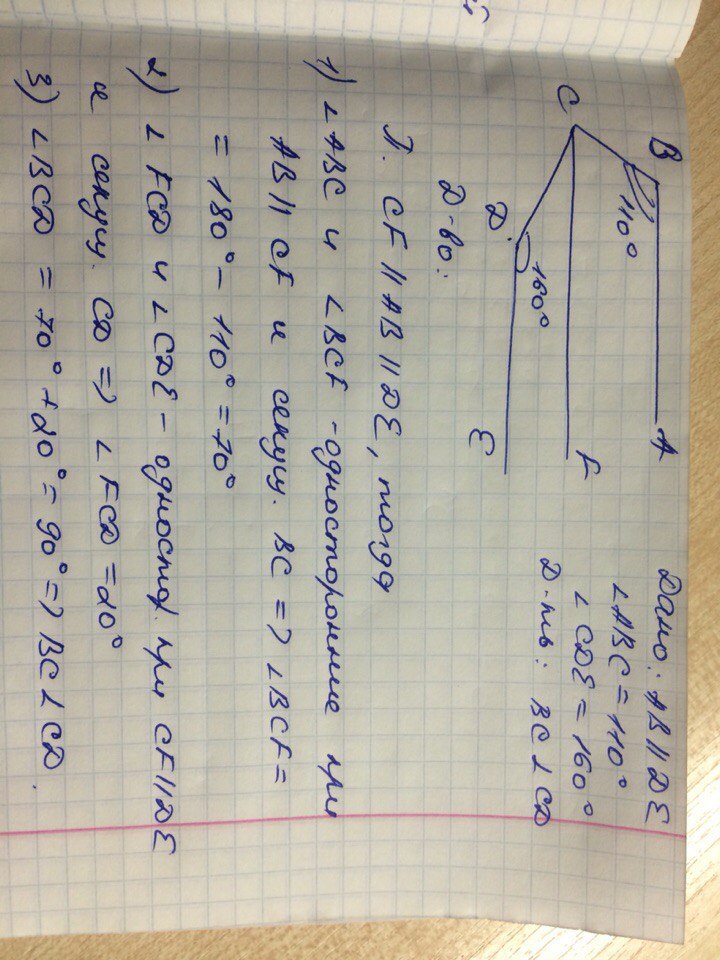 Дано: AB || DE
∠ABC = 110°
∠CDE = 160°
Д-ть: BC ⊥ CD
B
A
110°
C
F
160°
D
E
Д-во:
П. CF || AB || DE, тогда
1) ∠ABC и ∠BCF - односторонние при
AB || CF и секущ. BC => ∠BCF =
= 180° - 110° = 70°
2) ∠FCD и ∠CDE - одностор. при CF || DE
и секущ. CD => ∠FCD = 20°
3) ∠BCD = 70° + 20° = 90° => BC ⊥ CD.